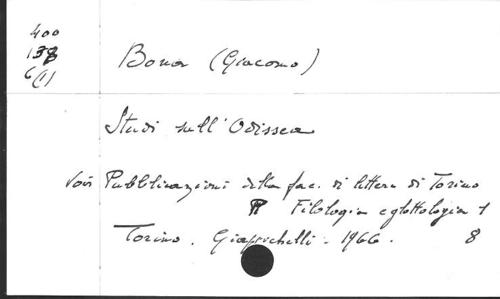 400
138
6(1)
Bona (Giacomo)
Studi sull'Odissea
voir Pubblicazioni della fac. di lettere di Torino
Filologia e glottologia 1
Torino. Giappichelli. 1966. 8